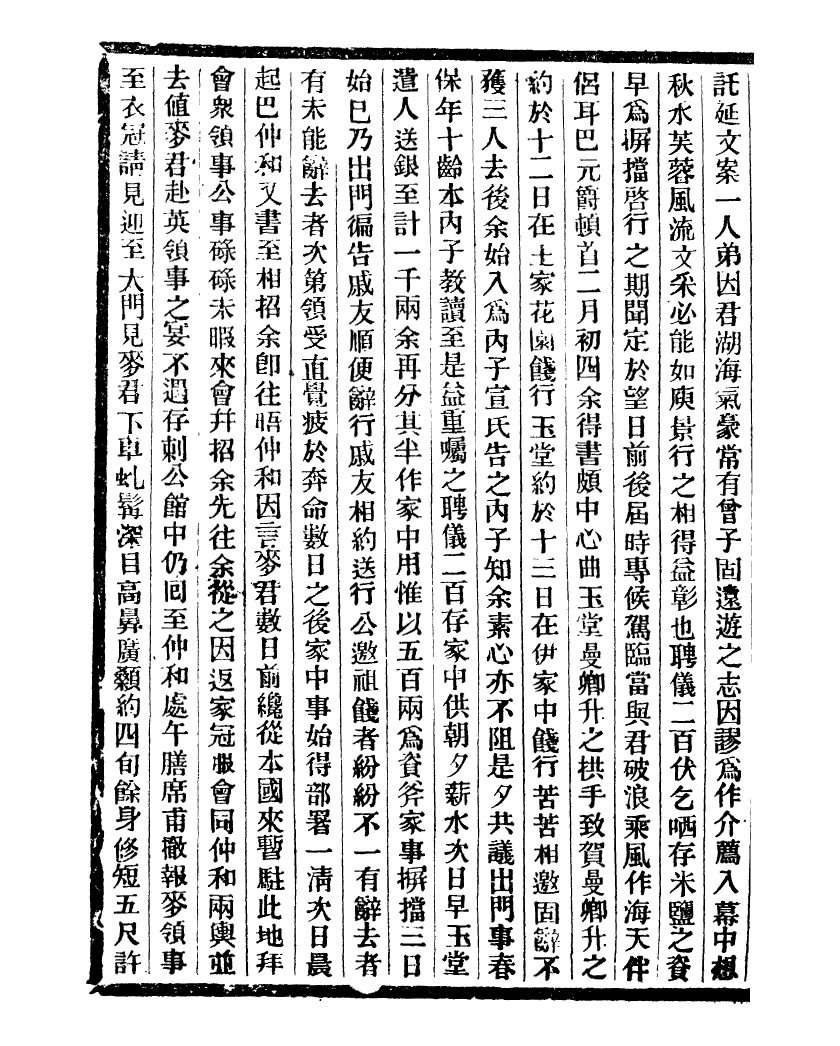 託延文案一人弟因君湖海氣豪常有曾子固遠遊之志因謬爲作介薦入幕中想
秋水芙蓉風流文采必能如庾景行之相得益彰也聘儀二百伏乞哂存米鹽之資
早爲摒擋啓行之期聞定於望日前後屆時專候駕臨當與君破浪乘風作海天伴
侶耳巴元爵頓首二月初四余得書頗中心曲玉堂曼卿升之拱手致賀曼卿升之
約於十二日在士家花園餞行玉堂約於十三日在伊家中餞行苦苦相邀固辭不
獲三人去後余始入爲內子宣氏告之內子知余素心亦不阻是夕共議出門事春
保年十齡本內子教讀至是益重囑之聘儀二百存家中供朝夕薪水次日早玉堂
遣人送銀至計一千兩余再分其半作家中用惟以五百兩爲資斧家事摒擋三日
始已乃出門徧告戚友順便辭行戚友相約送行公邀祖餞者紛紛不一有辭去者
有未能辭去者次第領受直覺疲於奔命數日之後家中事始得部署一清次日晨
起巴仲和又書至相招余卽往晤仲和因言麥君數日前纔從本國來暫駐此地拜
會衆領事公事碌碌未暇來會幷招余先往余從之因返家冠服會同仲和兩輿並
去値麥君赴英領事之宴不遇存刺公館中仍回至仲和處午膳席甫撤報麥領事
至衣冠請見迎至大門見麥君下車虬髯深目高鼻廣顙約四旬餘身修短五尺許